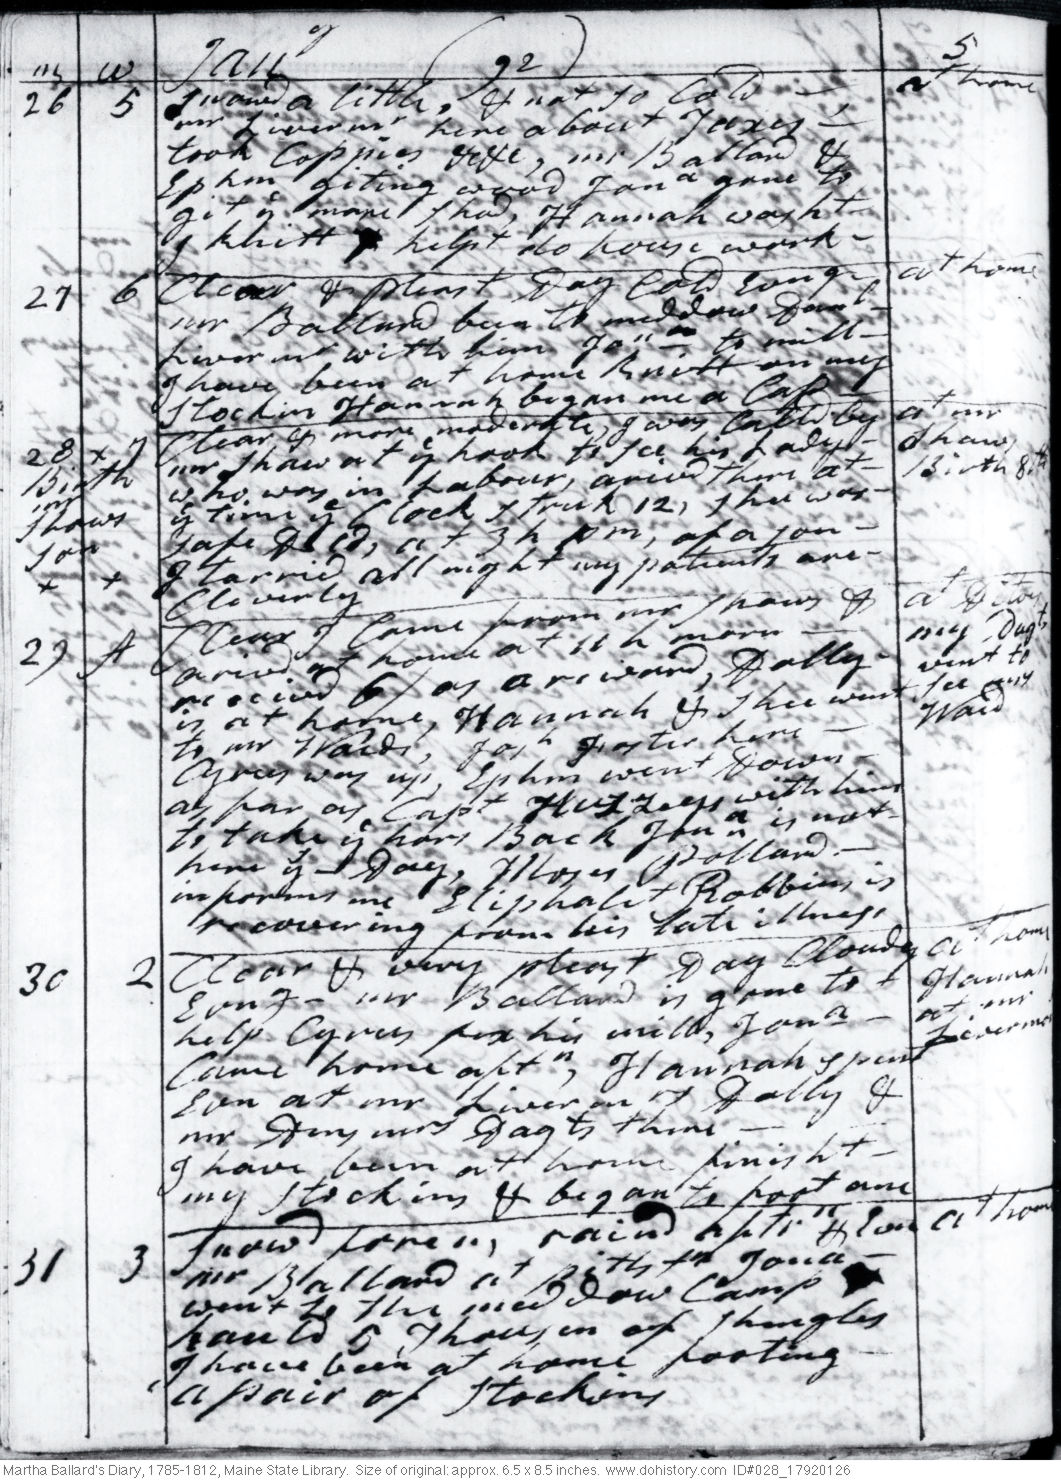 m w Jany (92) 5
26 5 Snowd a little, & not so Cold - at home
mr Livermr here about Taxes -
took Coppies &c &c, mr Ballard &
Ephm giting wood Jona gone to
git ye mare Shod, Hannah washt
I knitt & helpt do house work -
27 6 Clear & pleast Day Cold Evng at home
mr Ballard been to meddow Danl
Livermr with him Jona to mill -
I have been at home knitt on my
Stockin Hannah began me a Cap
28 x 7 Clear & more moderate, I was Calld by at mr
Birth mr Shaw at ye hook to see his Lady - Shaws
mr who was in Labour, arivd there at - Birth 8th
Shaws ye time ye Clock struk 12, shee was
son safe Dld, at 3 h pm, of a son -
x x I tarried all night my patients are -
Cleverly
29 A Clear I Came from mr Shaws & at Ditoes
arivd at home at 11 h morn - my Dagts
received 6/ as a reward, Dolly - went to
is at home, Hannah & Shee went see mrs
to mr Wards, Josh Foster here - Ward
Cyrus was up, Ephm went Down -
as far as Capt Husseys with him
to take ye hors Back Jona is not -
here ys Day, Moses Pollard -
informs me Eliphalet Robbins is
recovering from his late illness
30 2 Clear & very pleast Day Cloudy at home
Evng - mr Ballard is gone to Hannah
help Cyrus fix his mill, Jona - at mr
Came home aftn, Hannah spent Livermor
Evn at mr Livermrs Dolly &
mr Densmrs Dagts there -
I have been at home finisht -
my Stockins & began to foot one
31 3 Snowd foren, raind aftrn & Evn at home
mr Ballard at Pittstn Jona -
went to the meddow Camp
hauld 5 Thousen of Shingles
I have been at home footing
a pair of Stockins
Martha Ballard's Diary, 1785-1812, Maine State Library. Size of original: approx. 6.5 x 8.5 inches. www.dohistory.com ID#028_17920126